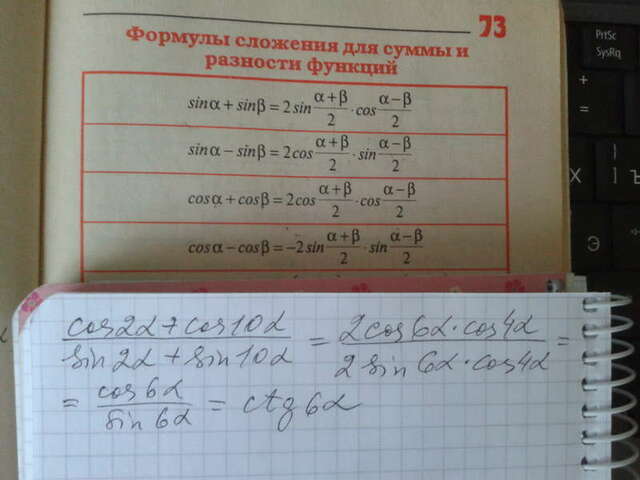 73
Формулы сложения для суммы и
разности функций
sinα + sinβ = 2 sin (α+β)/2 · cos (α−β)/2
sinα − sinβ = 2cos (α+β)/2 · sin (α−β)/2
cosα + cosβ = 2cos (α+β)/2 · cos (α−β)/2
cosα − cosβ = −2sin (α+β)/2 · sin (α−β)/2
(cos2α + cos10α)/(sin2α + sin10α) = (2cos6α · cos4α)/(2 sin 6α · cos4α) =
= cos6α/sin6α = ctg 6α
PrtSc
SysRq
+
=
Х
Ъ
Э